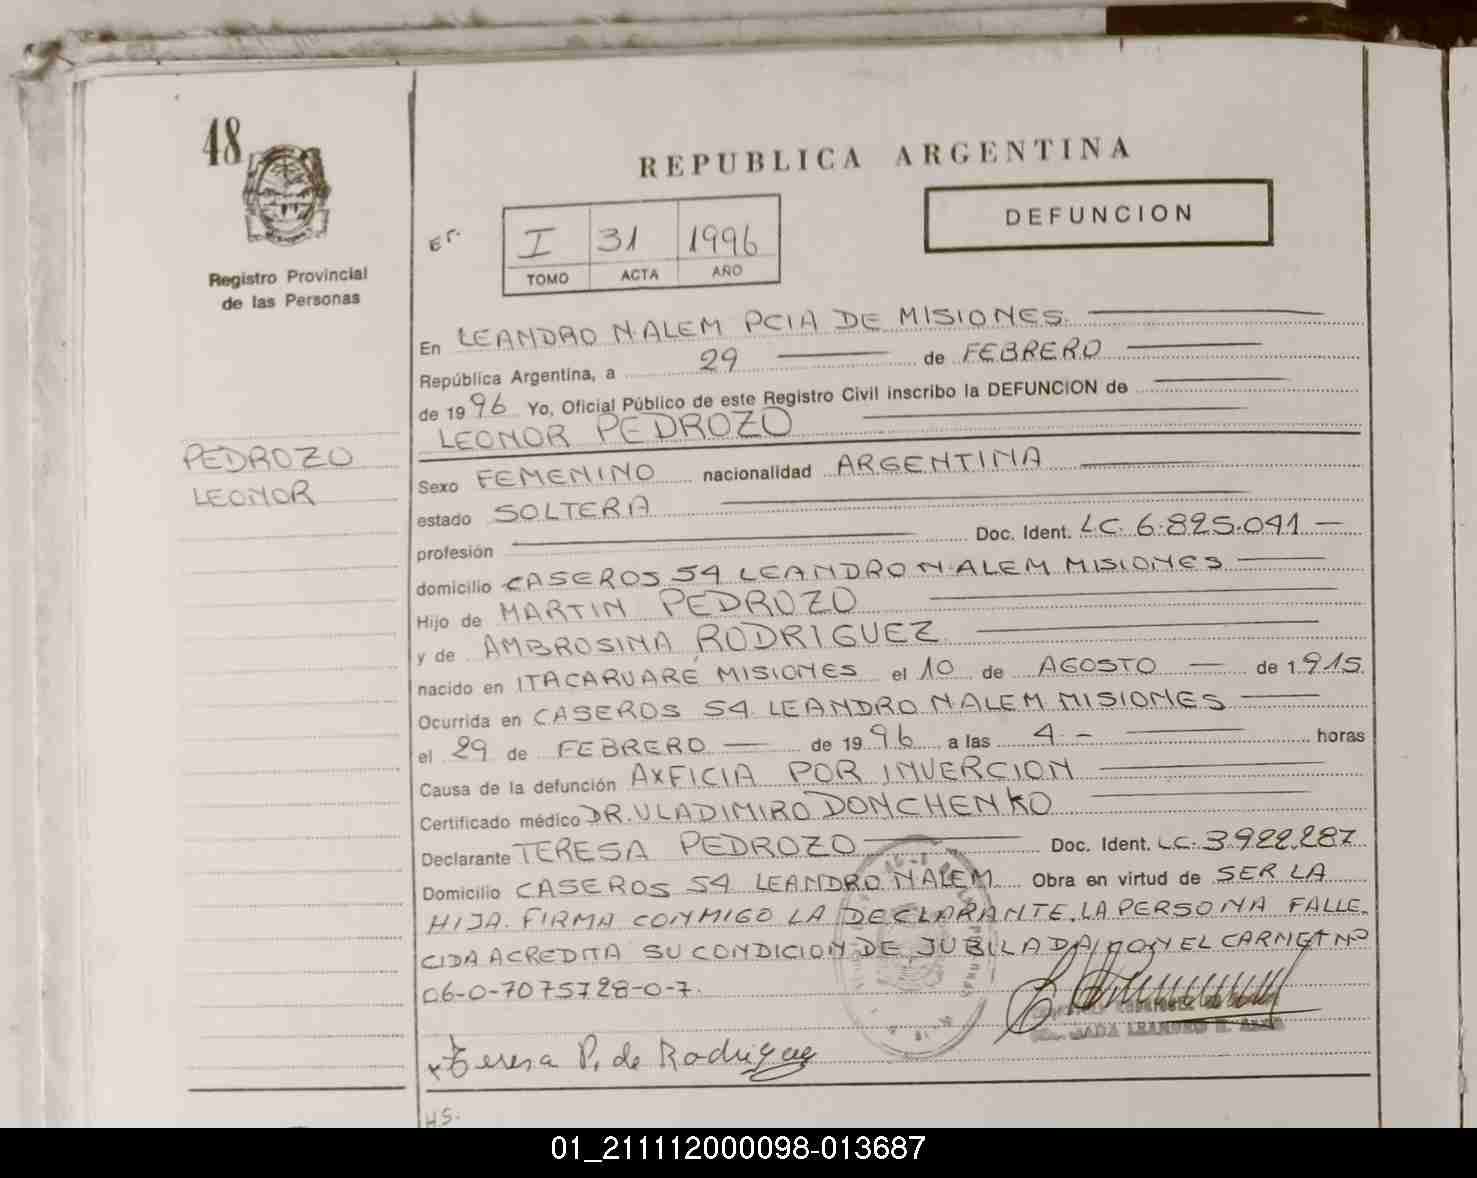 48
REPUBLICA ARGENTINA
DEFUNCION
I 31 1996
TOMO ACTA AÑO
Registro Provincial
de las Personas
En LEANDRO N·ALEM PCIA DE MISIONES.
República Argentina, a 29 de FEBRERO
de 1996 Yo, Oficial Público de este Registro Civil inscribo la DEFUNCION de
LEONOR PEDROZO
PEDROZO
LEONOR
Sexo FEMENINO nacionalidad ARGENTINA
estado SOLTERA
profesión Doc. Ident. LC. 6.825.041
domicilio CASEROS 54 LEANDRO N·ALEM MISIONES
Hijo de MARTIN PEDROZO
y de AMBROSINA RODRIGUEZ
nacido en ITACARUARÉ MISIONES el 10 de AGOSTO de 1.915.
Ocurrida en CASEROS 54 LEANDRO N·ALEM MISIONES
el 29 de FEBRERO de 1996 a las 4.- horas
Causa de la defunción AXFICIA POR INVERCION
Certificado médico DR. VLADIMIRO DONCHENKO
Declarante TERESA PEDROZO Doc. Ident. LC. 3.922.287
Domicilio CASEROS 54 LEANDRO N ALEM Obra en virtud de SER LA
HIJA. FIRMA CONMIGO LA DECLARANTE. LA PERSONA FALLE-
CIDA ACREDITA SU CONDICION DE JUBILADA CON EL CARNET Nº
06-0-7075728-0-7.
x Teresa P. de Rodriguez
H.S.
01_211112000098-013687